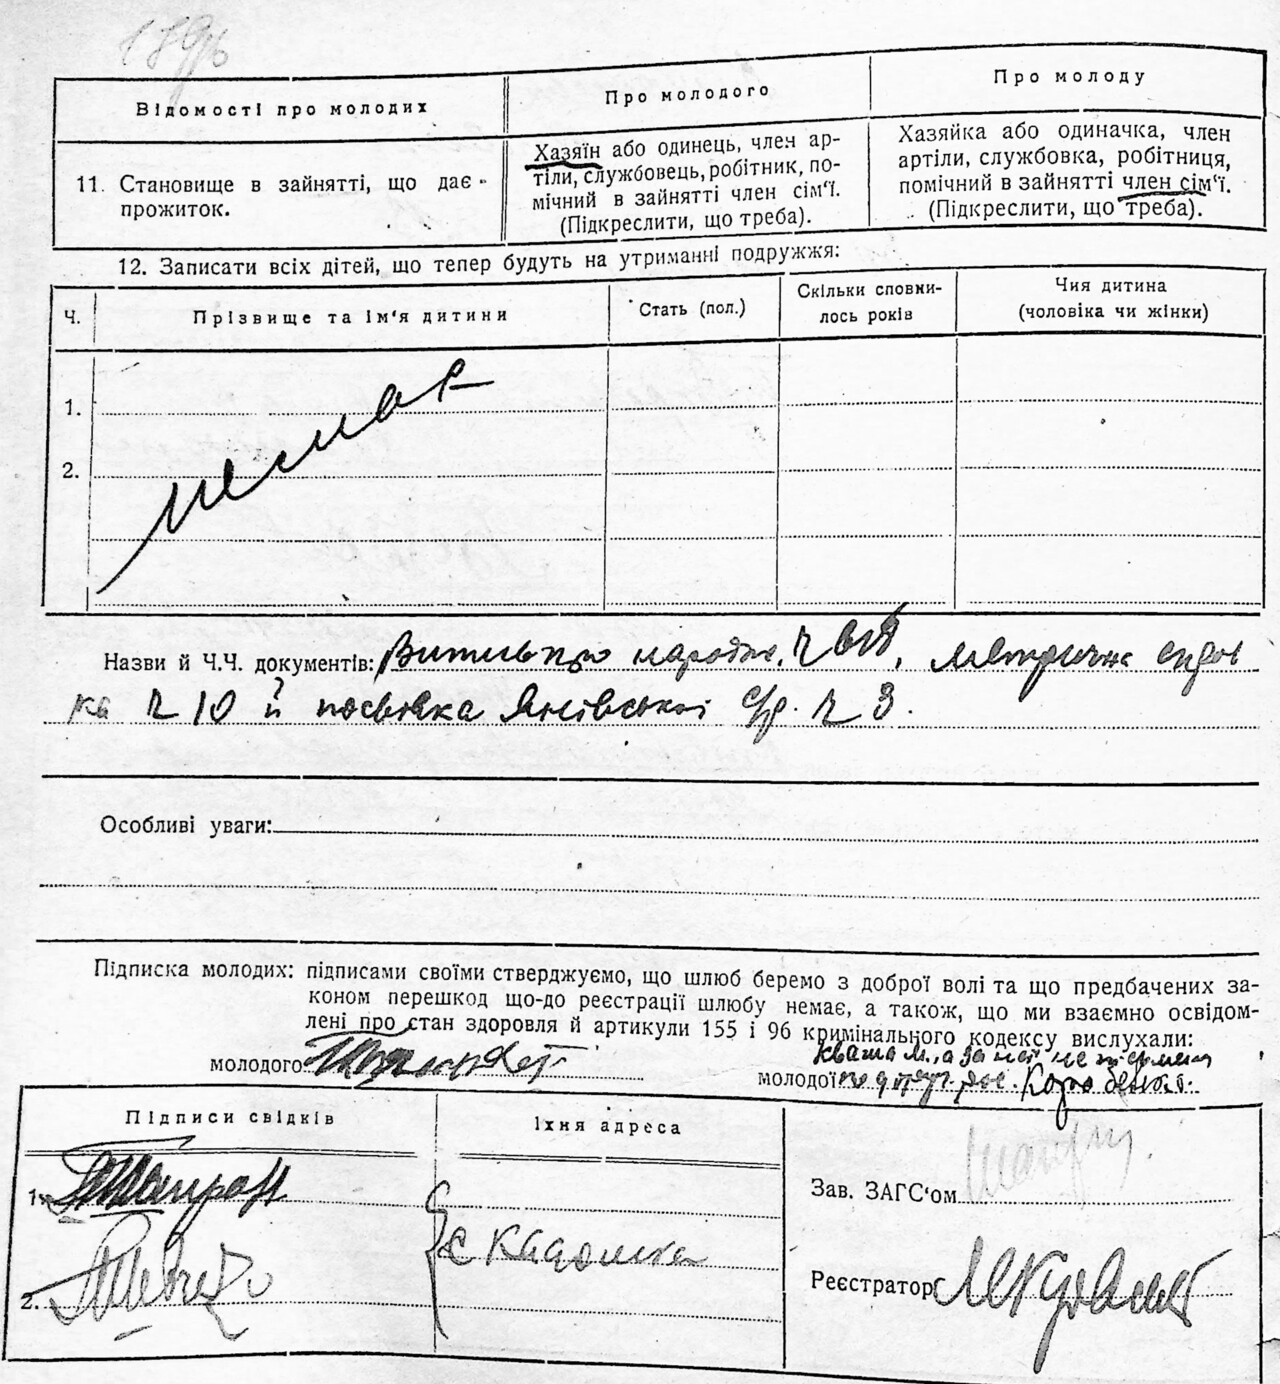 Відомості про молодих
Про молодого
Про молоду
11. Становище в зайнятті, що дає
прожиток.
Хазяїн або одинець, член ар-
тіли, службовець, робітник, по-
мічний в зайнятті член сім'ї.
(Підкреслити, що треба).
Хазяйка або одиначка, член
артіли, службовка, робітниця,
помічний в зайнятті член сім'ї.
(Підкреслити, що треба).
12. Записати всіх дітей, що тепер будуть на утриманні подружжя:
Ч.
Прізвище та ім'я дитини
Стать (пол.)
Скільки сповни-
лось років
Чия дитина
(чоловіка чи жінки)
1.
немає
2.
Назви й Ч.Ч. документів: Витись про народж. ч метрична
ка ч 10 й посвідка Янівської с/р. ч 3.
Особливі уваги:
Підписка молодих: підписами своїми стверджуємо, що шлюб беремо з доброї волі та що предбачених за-
коном перешкод що-до реєстрації шлюбу немає, а також, що ми взаємно освідом-
лені про стан здоровля й артикули 155 і 96 кримінального кодексу вислухали:
молодого
Кваша М., а за неї
молодої Коробенко
Підписи свідків
Їхня адреса
1.
с Кадомка
2.
Зав. ЗАГС'ом
Реєстратор